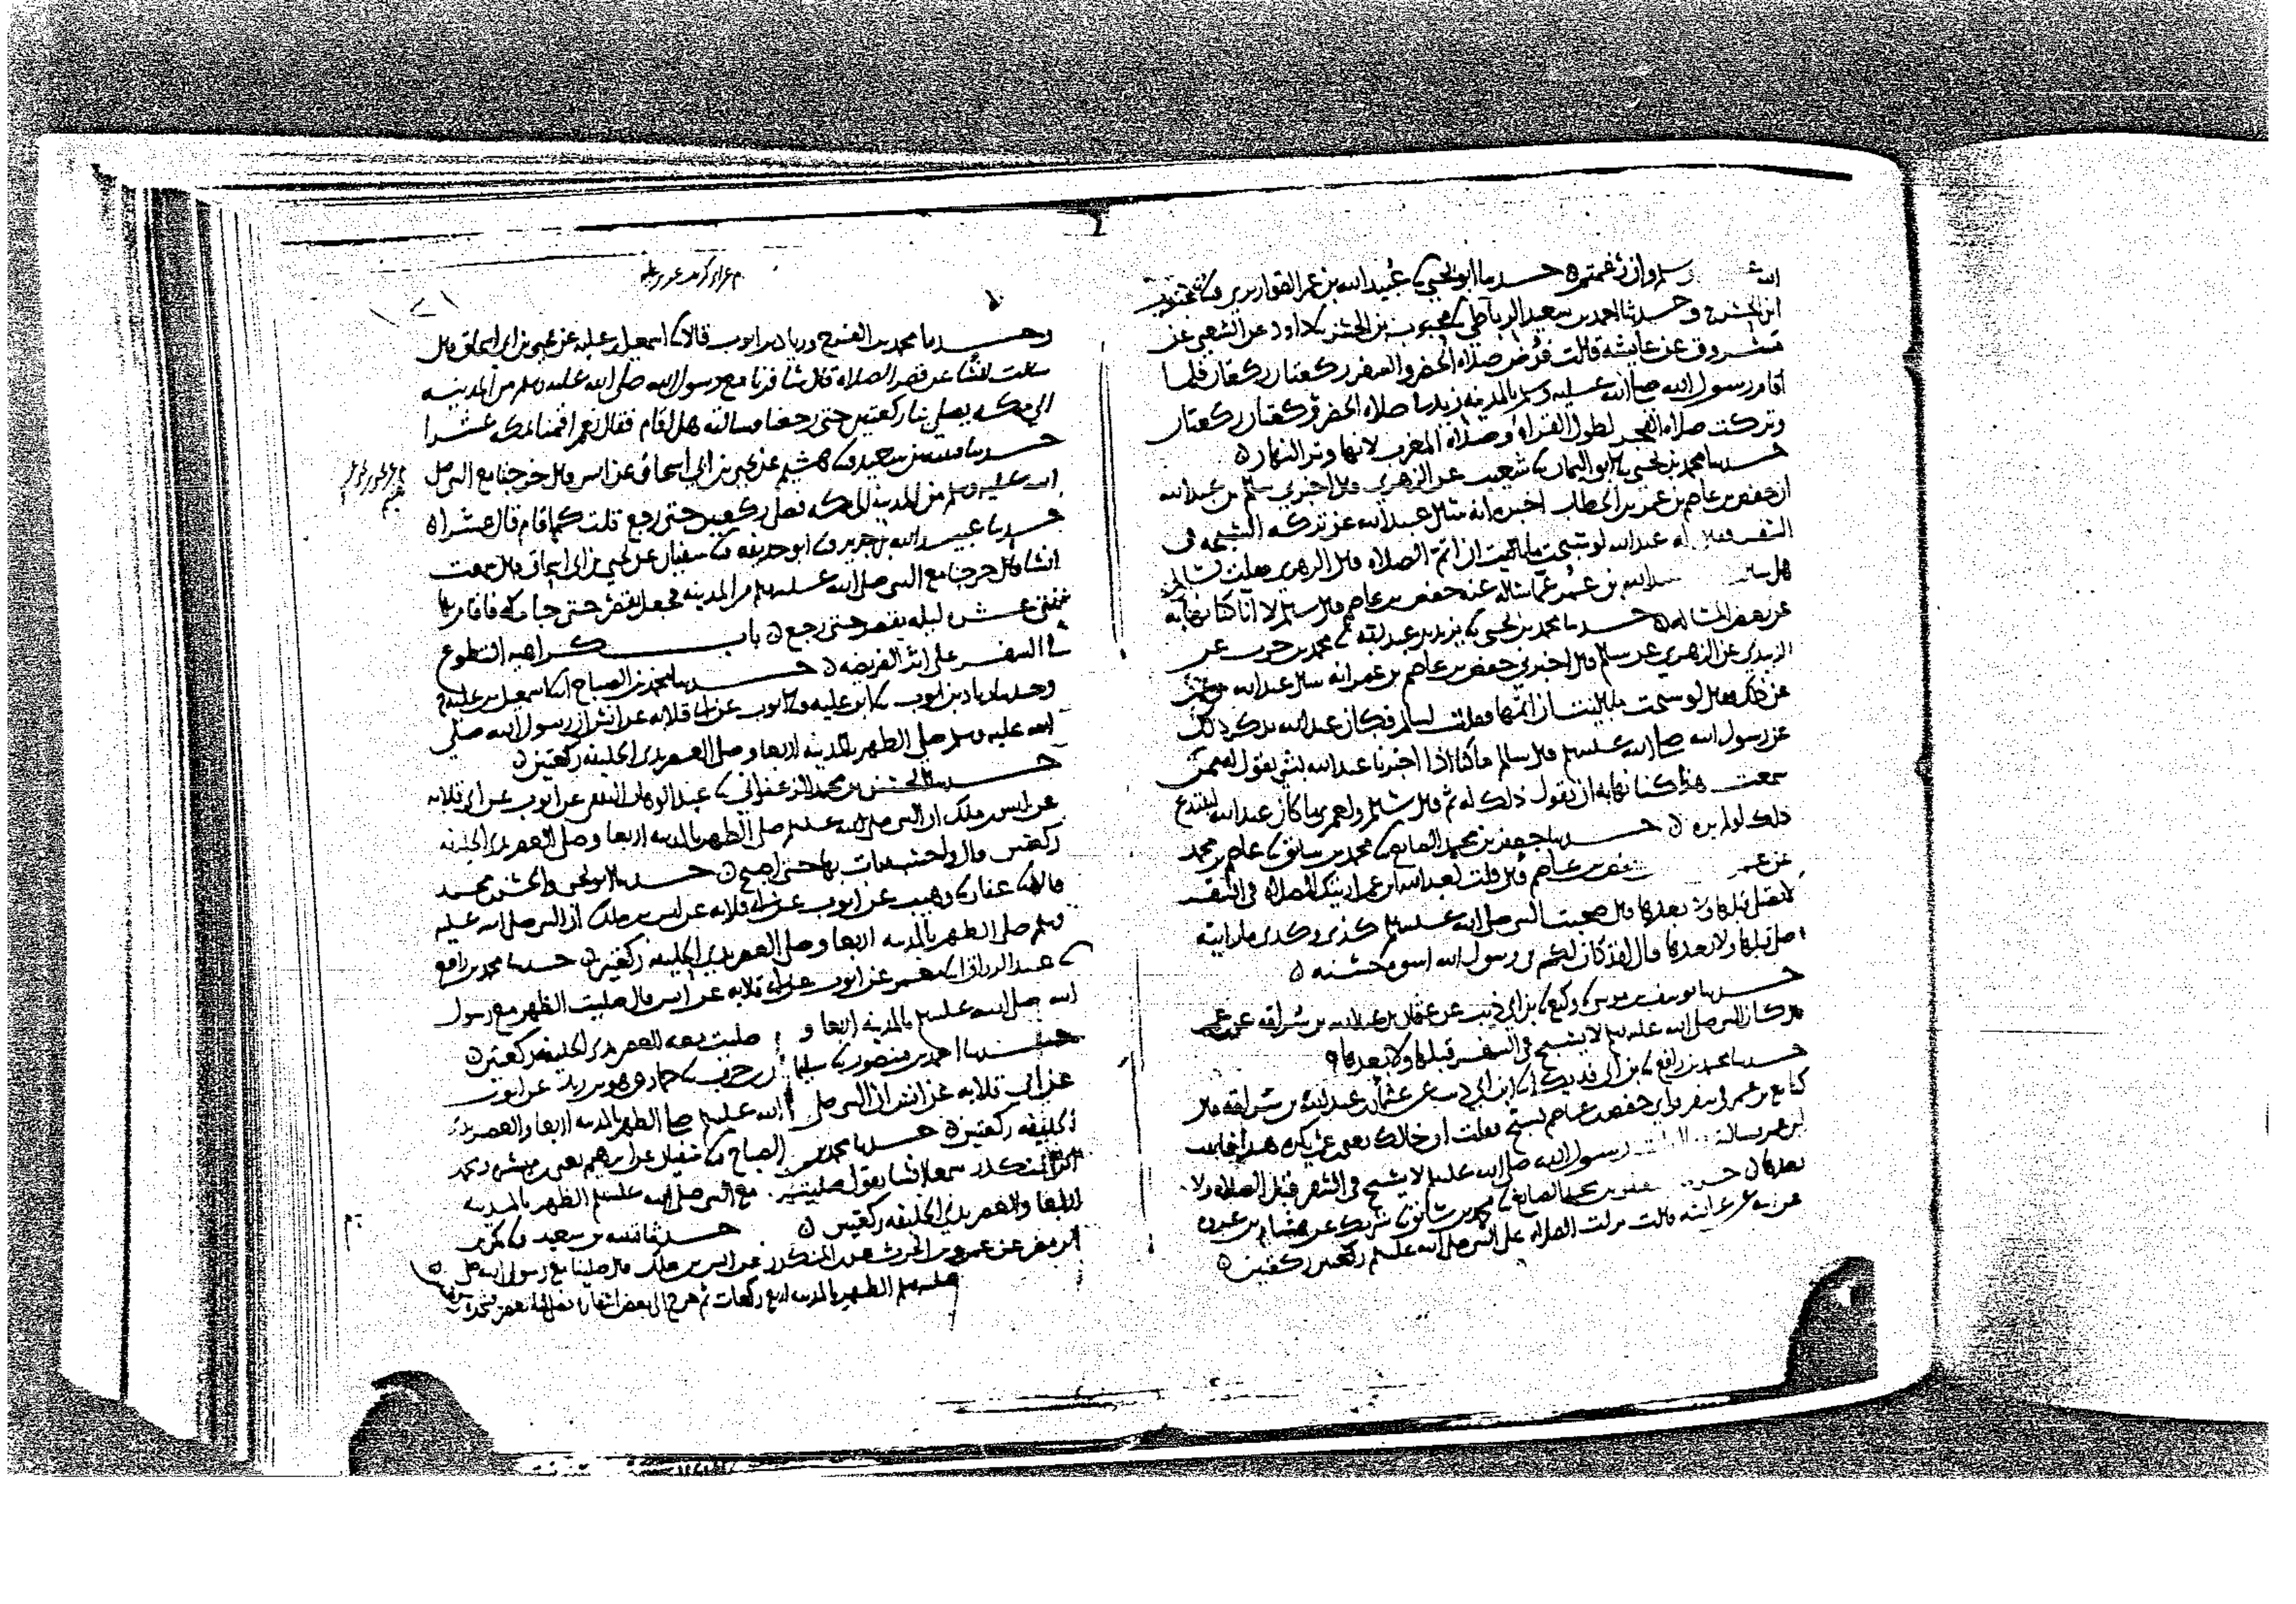 حدثنا ابو يحيى نا عبيد الله بن عمر القواريري نا محبوب
ابن الحسن وحدثنا احمد بن سعيد الرباطي نا محبوب بن الحسن نا داود عن الشعبي عن
مسروق عن عايشة قالت فرض صلاة الحضر والسفر ركعتان ركعتان فلما
اقام رسول الله صلى الله عليه وسلم بالمدينة زيد في صلاة الحضر ركعتان ركعتان
وتركت صلاة الفجر لطول القراءة وصلاة المغرب لانها وتر النهار
حدثنا محمد بن يحيى نا ابو اليمان نا شعيب عن الزهري قال اخبرني سالم بن عبد الله
ان حفص بن عاصم بن عمر بن الخطاب اخبره انه سال عبد الله عن تركه السبحة في
السفر فقال له عبد الله لو سبحت ما باليت ان اتم الصلاة قال الزهري فقلت لسالم
هل سالت عبد الله بن عمر عما ساله عنه حفص بن عاصم قال سالم لا انا كنا نهابه
عن بعض المسالة حدثنا محمد بن يحيى نا يزيد بن عبد ربه نا محمد بن حرب عن
الزبيدي عن الزهري عن سالم قال اخبرني حفص بن عاصم بن عمر انه سال عبد الله
عن ذلك فقال لو سبحت ما باليت ان اتمها فقلت لسالم فكان عبد الله يذكر ذلك
عن رسول الله صلى الله عليه وسلم قال سالم ما كنا اذا اخبرنا عبد الله بشي نقول له ممن
سمعت هذا كنا نهابه ان نقول ذلك له ثم قال سالم ولعمري ما كان عبد الله ليبتدع
ذلك لو لم يره حدثنا جعفر بن محمد الصايغ نا محمد بن سابق نا عاصم بن محمد
عن حفص بن عاصم قال قلت لعبد الله بن عمر رايتك الصلاة في السفر
لا تصلي قبلها ولا بعدها قال صحبت النبي صلى الله عليه وسلم كذى وكذى ما رايته
صلى قبلها ولا بعدها قال لقد كان لكم في رسول الله اسوة حسنة
حدثنا يوسف بن موسى نا وكيع نا ابن ابي ذيب عن عثمان بن عبد الله بن سراقة عن ابن عمر
قال كان النبي صلى الله عليه وسلم لا يسبح في السفر قبلها ولا بعدها
حدثنا محمد بن رافع نا ابن ابي فديك انا ابن ابي ذيب عن عثمان بن عبد الله بن سراقة قال
كنا مع بن عمر في سفر فراى حفص بن عاصم يسبح فقلت ان خالك ينهى عن هذا فاتيت
ابن عمر رسول الله صلى الله عليه وسلم لا يسبح في السفر قبل الصلاة ولا
بعدها حدثنا جعفر بن محمد الصايغ نا محمد بن سابق نا شريك عن هشام بن عروة
عن عايشة قالت نزلت الصلاة على النبي صلى الله عليه وسلم ركعتين ركعتين
وحدثنا محمد بن الصباح وزياد بن ايوب قالا نا اسمعيل بن علية عن يحيى بن ابي اسحاق قال
سالت انسا عن قصر الصلاة قال سافرنا مع رسول الله صلى الله عليه وسلم من المدينة
الى مكة يصلي بنا ركعتين حتى رجعنا وسالته هل اقام فقال نعم اقمنا بمكة عشرا
حدثنا قتيبة بن سعيد نا هشيم عن يحيى بن ابي اسحاق عن انس قال خرجنا مع النبي صلى
الله عليه وسلم من المدينة الى مكة فصلى ركعتين حتى رجع قلت كم اقام قال عشرا
حدثنا عبيد الله بن جرير نا ابو حذيفة نا سفيان عن يحيى بن ابي اسحاق قال سمعت
انسا قال خرجنا مع النبي صلى الله عليه وسلم من المدينة فجعل يقصر حتى جا مكة فاقام بها
عشرة ليلة يقصر حتى رجع باب كراهية التطوع
في السفر على اثر الفريضة حدثنا محمد بن الصباح انا اسمعيل بن علية
وحدثنا زياد بن ايوب نا ابن علية نا ايوب عن ابي قلابة عن انس ان رسول الله صلى
الله عليه وسلم صلى الظهر بالمدينة اربعا وصلى العصر بذي الحليفة ركعتين
حدثنا الحسن بن محمد الزعفراني نا عبد الوهاب الثقفي عن ايوب عن ابي قلابة
عن انس بن ملك ان النبي صلى الله عليه وسلم صلى الظهر بالمدينة اربعا وصلى العصر بذي الحليفة
ركعتين قال واحسبه بات بها حتى اصبح حدثنا ابو يحيى والحسن بن محمد
قالا نا عفان نا وهيب عن ايوب عن ابي قلابة عن انس بن ملك ان النبي صلى الله عليه
وسلم صلى الظهر بالمدينة اربعا وصلى العصر بذي الحليفة ركعتين حدثنا محمد بن رافع
نا عبد الرزاق انا معمر عن ايوب عن ابي قلابة عن انس قال صليت الظهر مع رسول
الله صلى الله عليه وسلم بالمدينة اربعا و صليت معه العصر بذي الحليفة ركعتين
حدثنا احمد بن منصور نا سليمان بن حرب نا حماد وهو بن زيد عن ايوب
عن ابي قلابة عن انس ان النبي صلى الله عليه وسلم صلى الظهر بالمدينة اربعا والعصر بذي
الحليفة ركعتين حدثنا محمد بن الصباح نا سفيان عن ابرهيم يعني بن ميسرة ومحمد
ابن المنكدر سمعا انسا يقول صليت مع النبي صلى الله عليه وسلم الظهر بالمدينة
اربعا والعصر بذي الحليفة ركعتين حدثنا قتيبة بن سعيد نا بكر بن
مضر عن عمرو بن الحرث عن بن المنكدر عن انس بن ملك قال صلينا مع رسول الله صلى
عليه وسلم الظهر بالمدينة اربع ركعات ثم خرج الى بعض اسفاره